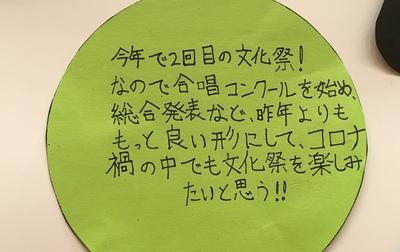 今年で2回目の文化祭!
なので合唱コンクールを始め、
総合発表など、昨年よりも
もっと良い形にして、コロナ
禍の中でも文化祭を楽しみ
たいと思う!!